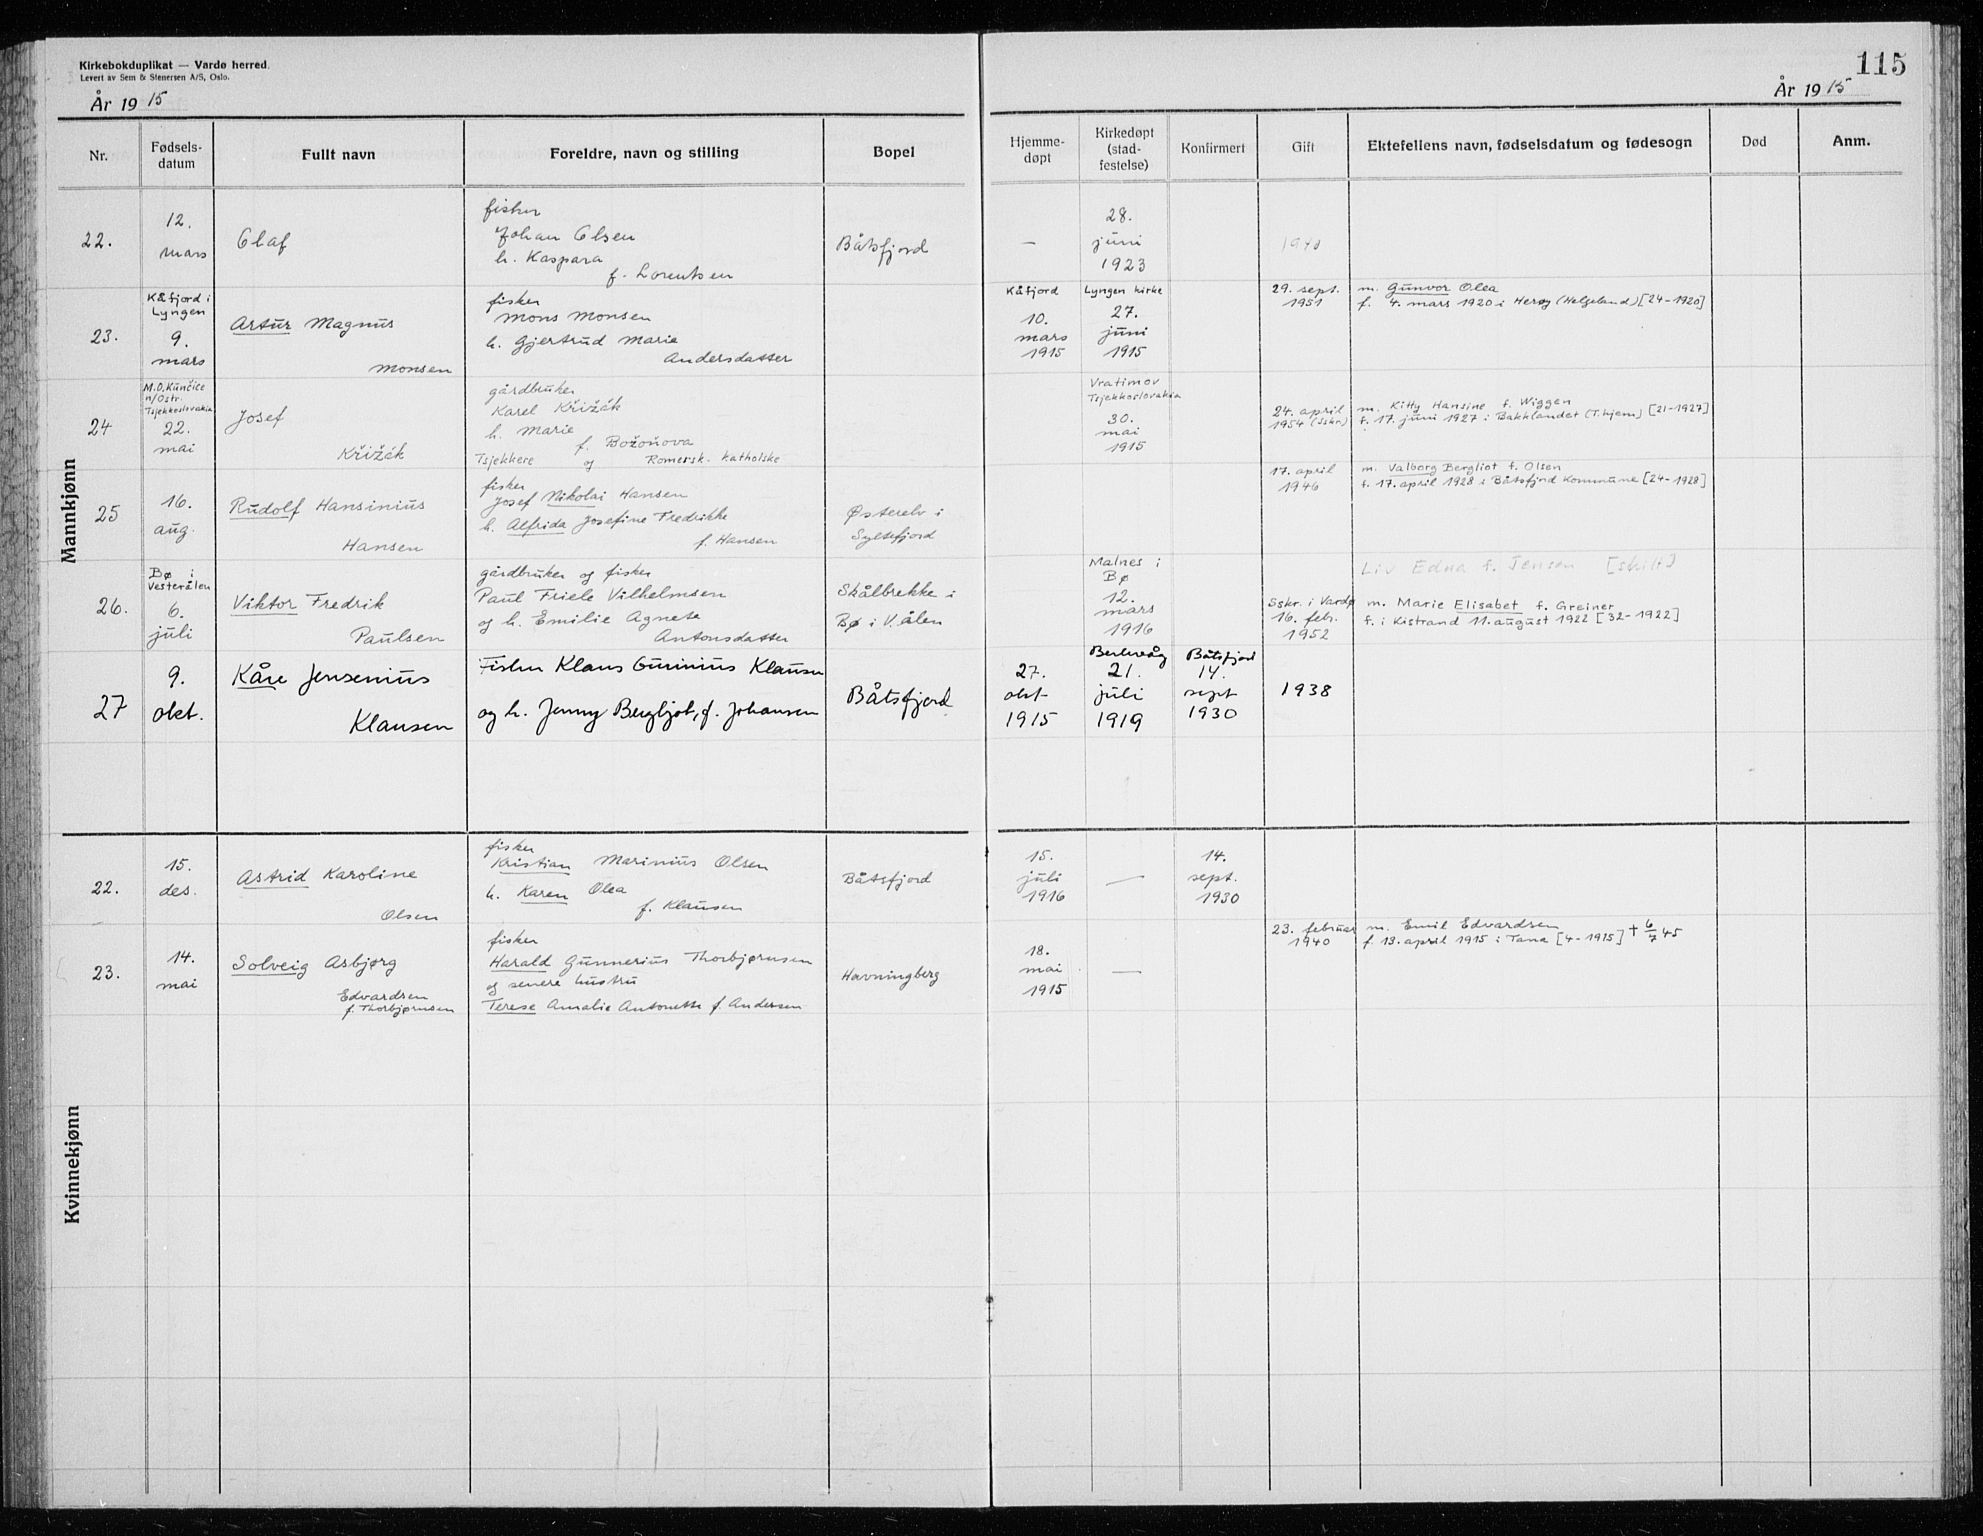 Kirkebokduplikat — Vardø herred.
Levert av Sem & Stenersen A/S, Oslo.
År 1915
115
År 1915
Nr.
Fødsels-
datum
Fullt navn
Foreldre, navn og stilling
Bopel
Hjemme-
døpt
Kirkedøpt
(stad-
festelse)
Konfirmert
Gift
Ektefellens navn, fødselsdatum og fødesogn
Død
Anm.
Mannkjønn
22.
12.
mars
Olaf
fisker
Johan Olsen
h. Kaspara
f. Lorentsen
Båtsfjord
—
28.
juni
1923
1940
23.
Kåfjord i
Lyngen
9.
mars
Artur Magnus
Monsen
fisker
Mons Monsen
h. Gjertrud Marie
Andersdatter
Kåfjord
10.
mars
1915
Lyngen kirke
27.
juni
1915
29. sept.
1951
m. Gunvor Olea
f. 4. mars 1920 i Herøy (Helgeland) [24-1920]
24
M.O. Kunčice
n/Ostr.
Tsjekkoslovakia
22.
mai
Josef
Křižák
gårdbruker
Karel Křižák
h. Marie
f. Božoňova
Tsjekkere og Romersk. katholske
Vratimov
Tsjekkoslovakia
30.
mai
1915
24. april
1954 (Sskr)
m. Kitty Hansine f. Wiggen
f. 17. juni 1927 i Bakklandet (T.hjem) [21-1927]
25
16.
aug.
Rudolf Hansinius
Hansen
fisker
Josef Nikolai Hansen
h. Alfrida Josefine Fredrikke
f. Hansen
Østerelv i
Syltefjord
17. april
1946
m. Valborg Bergliot f. Olsen
f. 17. april 1928 i Båtsfjord Kommune [24-1928]
26.
Bø i
Vesterålen
6.
juli
Viktor Fredrik
Paulsen
gårdbruker og fisker
Paul Friele Vilhelmsen
og h. Emilie Agnete
Antonsdatter
Skålbrekke i
Bø i V.ålen
Malnes i
Bø
12.
mars
1916
Sskr. i Vardø
16. febr.
1952
Liv Edna f. Jensen [skilt]
m. Marie Elisabet f. Greiner
f. i Kistrand 11. august 1922 [32-1922]
27
9.
okt.
Kåre Jensenius
Klausen
Fisker Klaus Gunnius Klausen
og h. Jenny Bergljot, f. Johansen
Båtsfjord
27.
okt
1915
Berlevåg
21.
juli
1919
Båtsfjord
14.
sept
1930
1938
Kvinnekjønn
22.
15.
des.
Astrid Karoline
Olsen
fisker
Kristian Marinius Olsen
h. Karen Olea
f. Klausen
Båtsfjord
15.
juli
1916
—
14.
sept.
1930
23.
14.
mai
Solveig Asbjørg
Edvardsen
f. Thorbjørnsen
fisker
Harald Gunnerius Thorbjørnsen
og senere hustru
Terese Amalie Antonette f. Andersen
Havningberg
18.
mai
1915
—
23. februar
1940
m. Emil Edvardsen
f. 13. april 1915 i Tana [4-1915] † 6/7 45